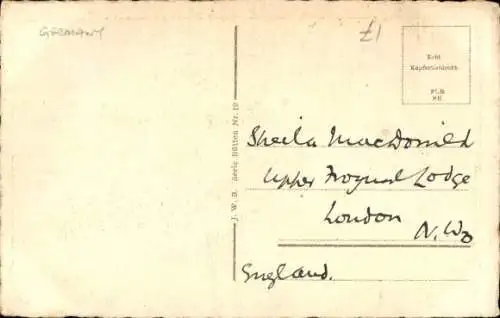 GERMANY
£1
Echt
Kupfertiefdruck
J. W. B. Serie Bütten Nr. 19
Sheila MacDonald
Upper Frognal Lodge
London
N.W.3
England.